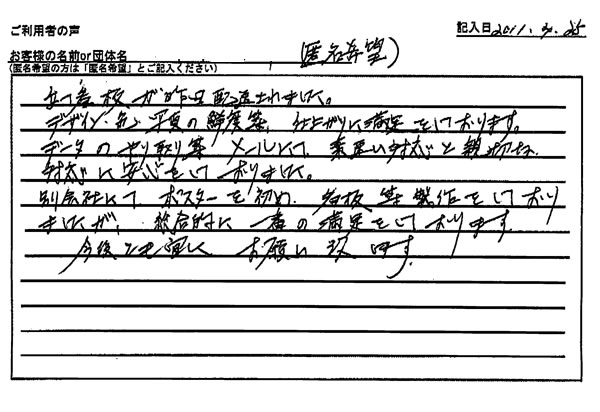 ご利用者の声
記入日2011.3.25
お客様の名前or団体名
(匿名希望)
(匿名希望の方は「匿名希望」とご記入ください)
立看板が昨日配送されました。
デザイン・色・写真の鮮度等、仕上がりに満足をしております。
データのやり取り等 メールにて、素早い対応と親切な
対応に安心をしておりました。
別会社にて ポスターを初め、看板等製作をしており
ましたが、総合的に一番の満足をしております。
今後とも宜しくお願い致します。